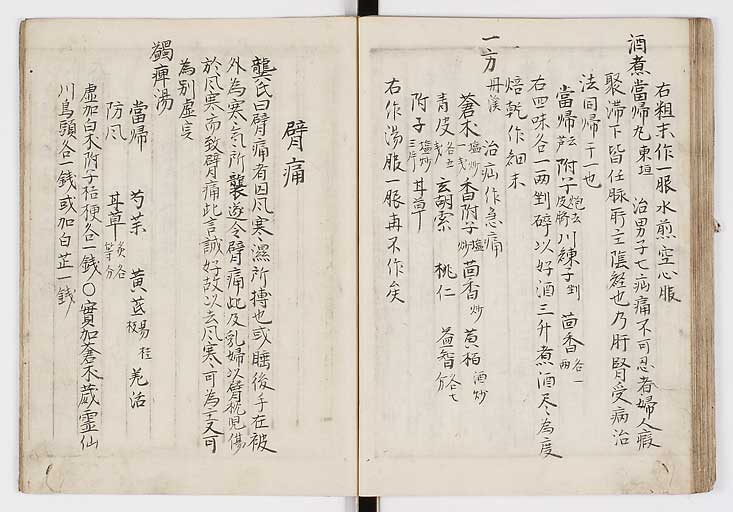 右粗末作一服水煎空心服
酒煮當歸丸東垣 治男子七疝痛不可忍者婦人瘕
聚滯下皆任脉所主陰経也乃肝腎受病治
法同歸于一也
當歸去芦 附子炮去皮臍 川練子剉 茴香各一兩
右四味各一兩剉碎以好酒三升煮酒尽々為度
焙乾作細末
一方 丹溪 治疝作急痛
蒼朮塩炒 香附子塩炒 茴香炒 黄栢酒炒
青皮 玄胡索 桃仁 益智各七分
附子塩炒三片 甘草
右作湯服一服再不作矣
臂痛
龔氏曰臂痛者因風寒々湿所搏也或睡後手在被
外為寒気所襲遂令臂痛此及乳婦以臂枕児傷
於風寒而致臂痛此言誠好故以去風寒々可為主又可
為別虚実
蠲痺湯
當歸 芍薬 黄芪 桂 羌活
防風 甘草炙各等分
虚加白朮附子桔梗各一銭〇實加蒼朮葳霊仙
川烏頭各一銭或加白芷一銭